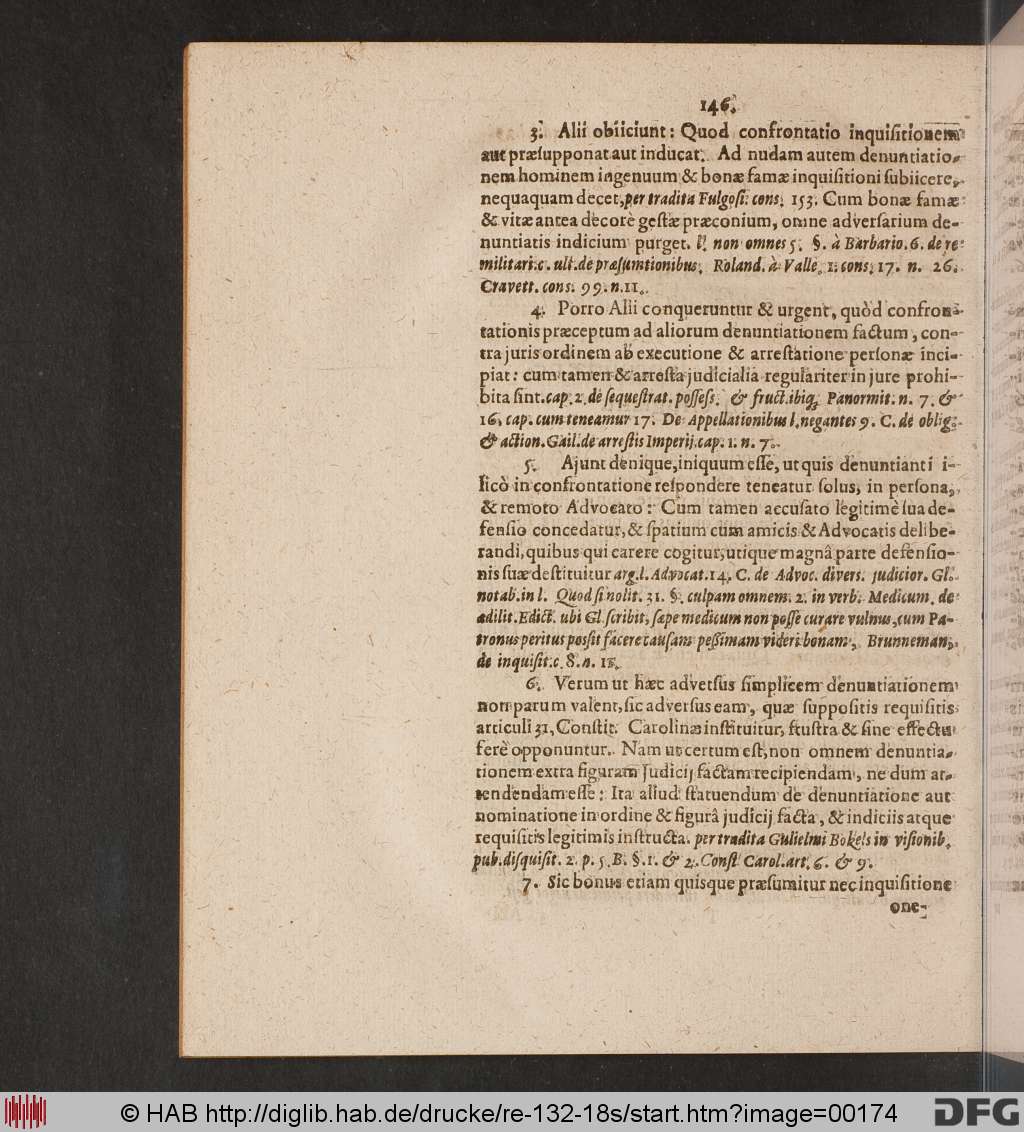 146.
3. Alii obiiciunt: Quod confrontatio inquiſitionem
aut præſupponat aut inducat. Ad nudam autem denuntiatio-
nem hominem ingenuum & bonæ famæ inquiſitioni ſubiicere,
nequaquam decet, per tradita Fulgoſi: cons. 153. Cum bonæ famæ
& vitæ antea decorè geſtæ præconium, omne adverſarium de-
nuntiatis indicium purget. l. non omnes 5. §. à Barbario. 6. de re
militari. c. ult. de præſumtionibus, Roland. à Valle. 1. cons. 17. n. 26.
Cravett. cons. 99. n. 11.
4. Porro Alii conqueruntur & urgent, quòd confron-
tationis præceptum ad aliorum denuntiationem factum, con-
tra juris ordinem ab executione & arreſtatione perſonæ inci-
piat: cum tamen & arreſta judicialia regulariter in jure prohi-
bita ſint. cap. 2. de ſequeſtrat. poſſeſs. & fruct. ibiq; Panormit. n. 7. &
16. cap. cum teneamur 17. De Appellationibus l. negantes 9. C. de oblig.
& action. Gail. de arreſtis Imperij. cap. 1. n. 7.
5. Ajunt denique, iniquum eſſe, ut quis denuntianti i-
licò in confrontatione reſpondere teneatur ſolus, in perſona,
& remoto Advocato: Cum tamen accuſato legitimè ſua de-
fenſio concedatur, & ſpatium cum amicis & Advocatis delibe-
randi, quibus qui carere cogitur, utique magnâ parte defenſio-
nis ſuæ deſtituitur arg. l. Advocat. 14. C. de Advoc. divers. judicior. Gl.
notab. in l. Quod ſi nolit. 31. §. culpam omnem. 2. in verb. Medicum. de
ædilit. Edict. ubi Gl. ſcribit, ſæpe medicum non poſſe curare vulnus, cum Pa-
tronus peritus posſit facere cauſam peſſimam videri bonam, Brunneman,
de inquiſit. c. 8. n. 11.
6. Verum ut hæc adverſus ſimplicem denuntiationem
non parum valent, ſic adverſus eam, quæ ſuppoſitis requiſitis
articuli 31, Conſtit. Carolinæ inſtituitur, fruſtra & ſine effectu
ferè opponuntur. Nam ut certum eſt, non omnem denuntia-
tionem extra figuram Judicij factam recipiendam, ne dum at-
tendendam eſſe: Ita aliud ſtatuendum de denuntiatione aut
nominatione in ordine & figurâ judicij facta, & indiciis atque
requiſitis legitimis inſtructa. per tradita Gulielmi Bokels in viſionib.
pub. diſquiſit. 2. p. 5. B. §. 1. & 2. Conſt Carol. art. 6. & 9.
7. Sic bonus etiam quisque præſumitur nec inquiſitione
one-
© HAB http://diglib.hab.de/drucke/re-132-18s/start.htm?image=00174
DFG